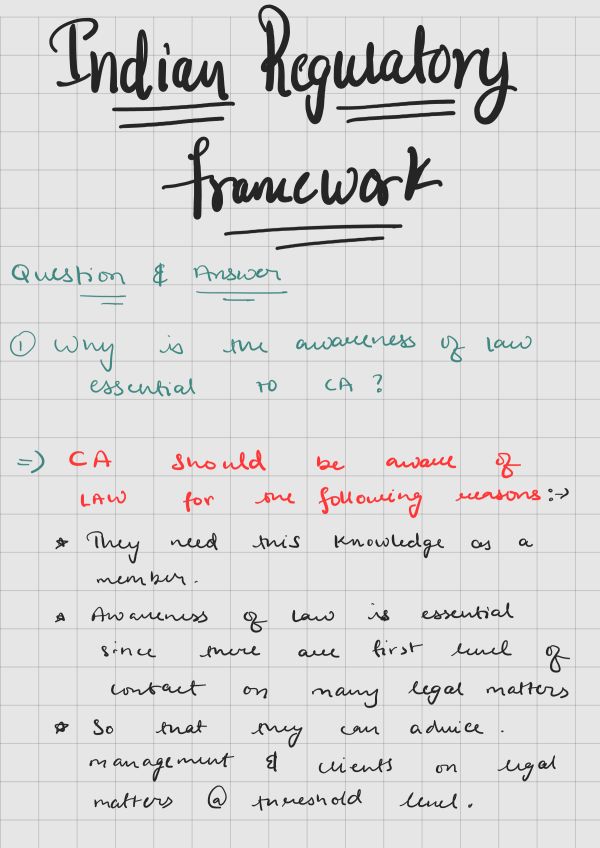 Indian Regulatory
framework
Question & Answer
① Why is the awareness of law
essential to CA ?
=> CA should be aware of
LAW for the following reasons :->
* They need this knowledge as a
member.
* Awareness of law is essential
since there are first level of
contact on many legal matters
* So that they can advice.
management & clients on legal
matters @ threshold level.